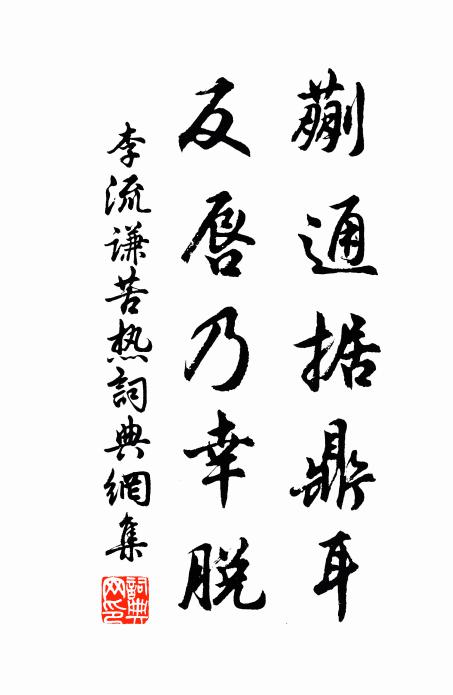 蒯通据鼎耳
反唇乃幸脱
李流谦苦热詞典網集
詞典網印